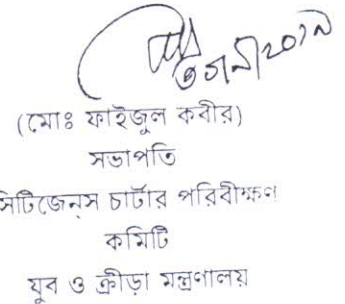 (মোঃ ফাইজুল কবীর)
সভাপতি
সিটিজেনস চার্টার পরিবীক্ষণ
কমিটি
যুব ও ক্রীড়া মন্ত্রণালয়